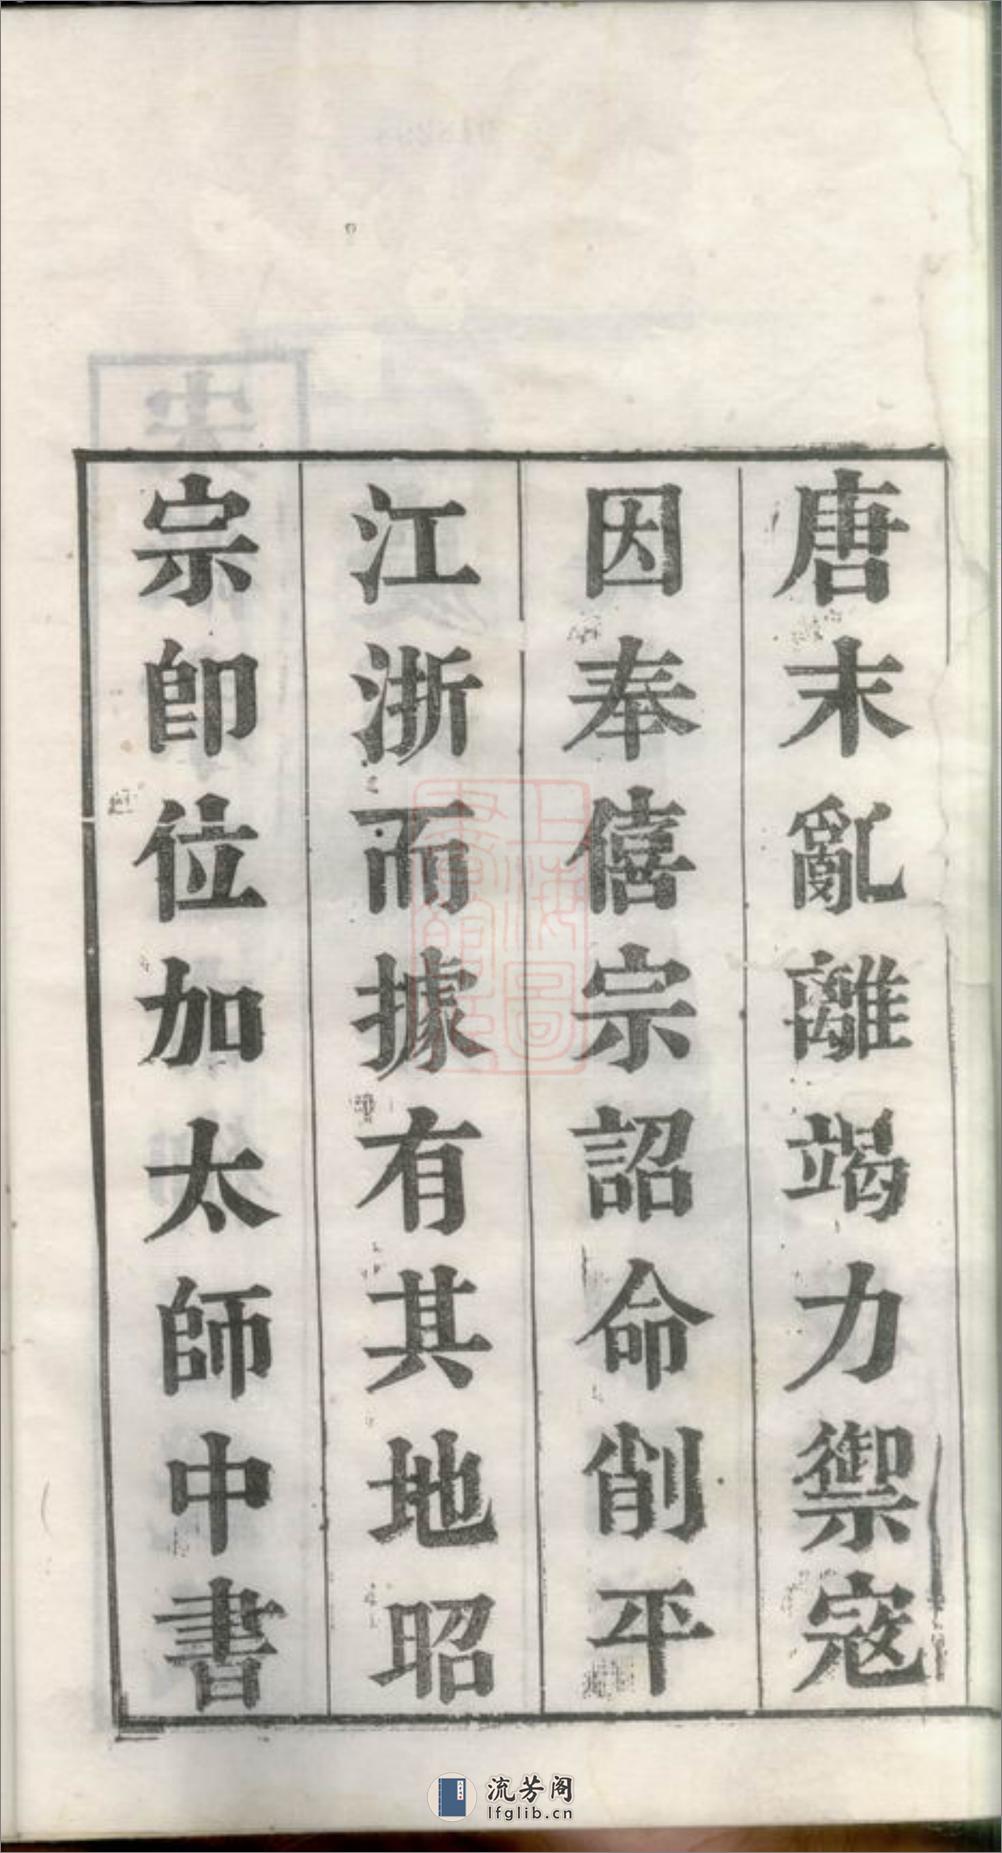 唐末亂離竭力禦寇
因奉僖宗詔命削平
江浙而據有其地昭
宗卽位加太師中書
上海圖
書館藏
流芳阁
lfglib.cn